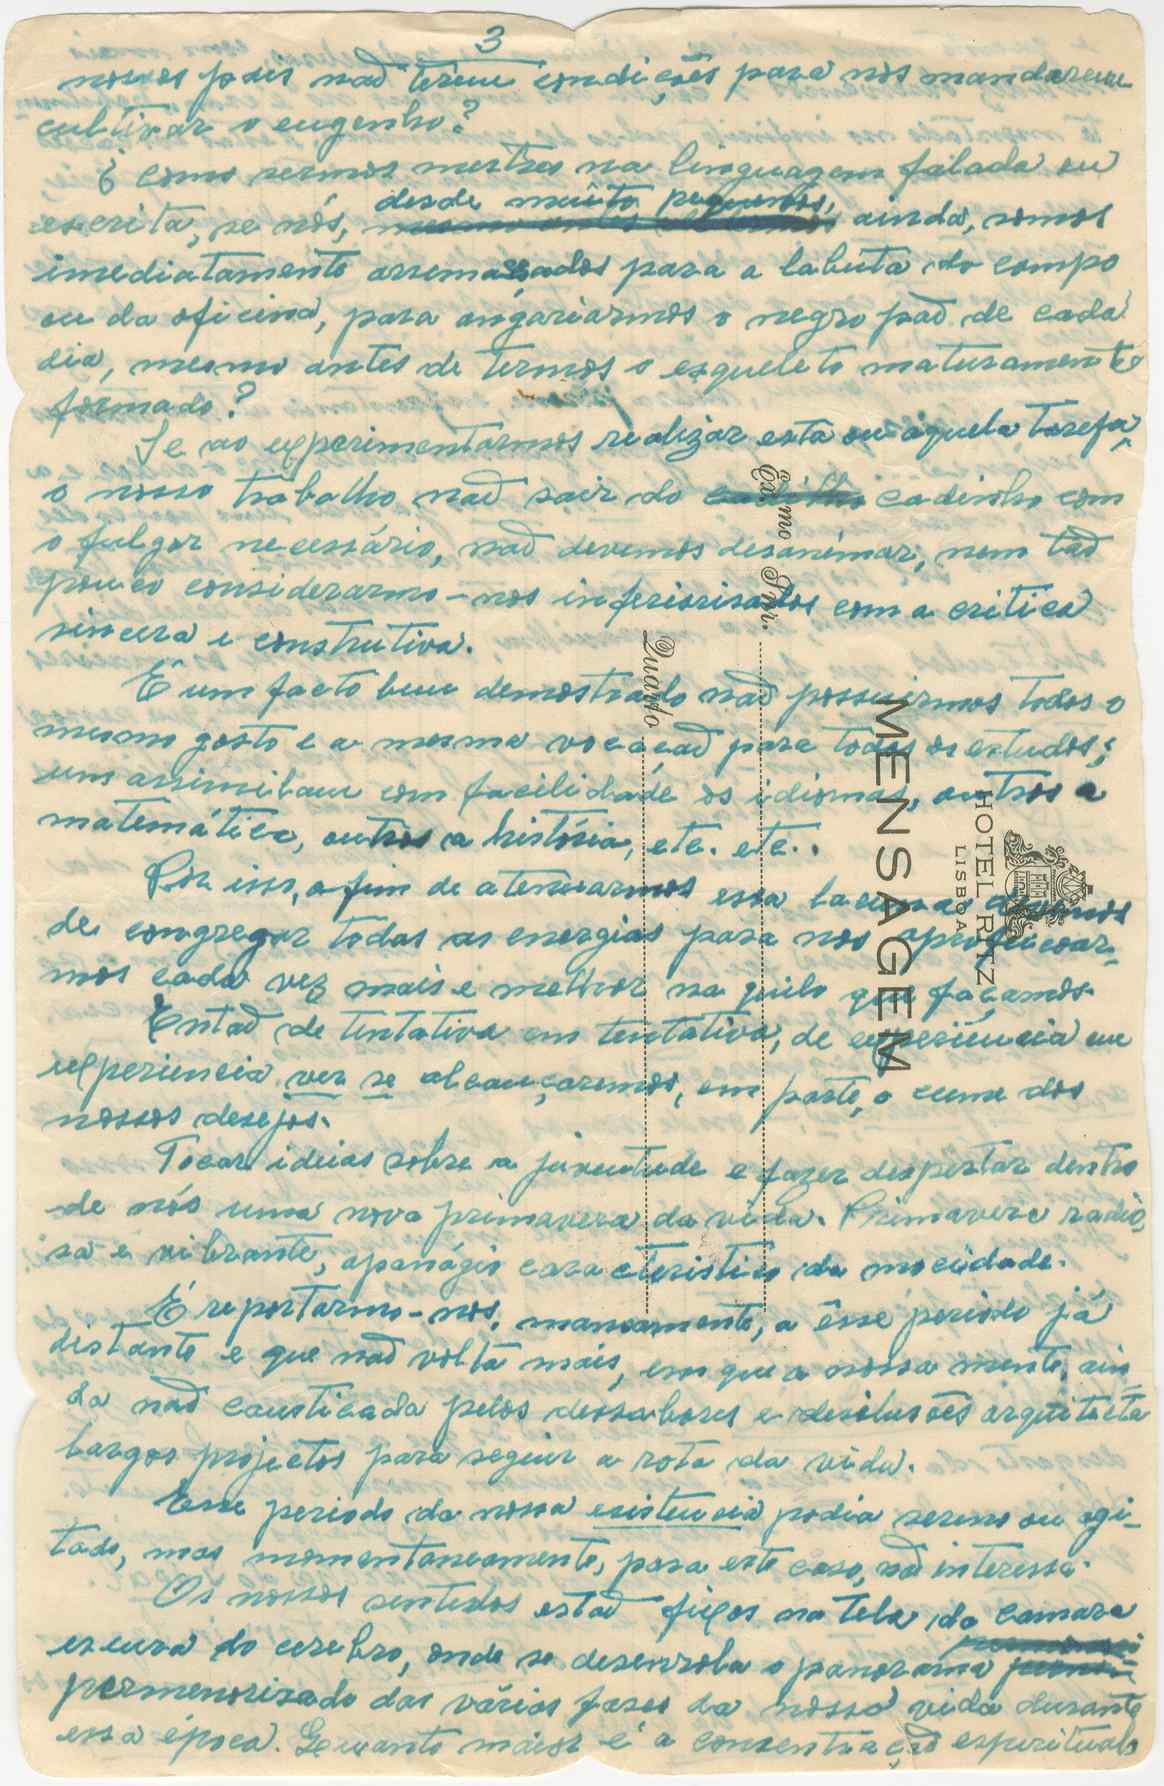 3
nossos pais não terem condições para nos mandarem
cultivar o engenho?
E como sermos mestres na linguagem falada ou
desde muito pequenos,
escrita, se nós, ainda, somos
imediatamente arremassados para a labuta do campo
ou da oficina, para angariarmos o negro pão de cada
dia, mesmo antes de termos o esqueleto maturamente
formado?
Se ao experimentarmos realizar esta ou aquela tarefa,
o nosso trabalho não sair do cadinho com
o fulgor necessário, não devemos desanimar, nem tão
pouco considerarmo-nos inferiorisados com a critica
sincera e construtiva.
É um facto bem demostrado não possuirmos todos o
mesmo gosto e a mesma vocação para todos os estudos;
uns assimilam com facilidade os idiomas, outros a
matemática, outros a história, etc. etc..
Por isso, a fim de atenuarmos essa lacuna
de congregar todas as energias para nos aperfeiçoar-
mos cada vez mais e melhor na quilo que façamos.
Então de tentativa em tentativa, de experiencia em
experiencia ver se alcançaremos, em parte, o cume dos
nossos desejos.
Tocar ideias sobre a juventude e fazer despertar dentro
de nós uma nova primavera da vida. Primavera radio,
sa e vibrante, apanágio caracteristico da mocidade.
É reportarmo-nos, mansamente, a êsse periodo já
distante e que não volta mais, em que a nossa mente, ain
da não causticada pelos dessabores e desilusões arquitecta
largos projectos para seguir a rota da vida.
Esse periodo da nossa existencia podia sereno ou agi-
tado, mas momentaneamente, para este caso, não interessa.
Os nossos sentidos estão fixos na tela da camara
escura do cerebro, onde se desenrola o panorama
permenorizado das várias fases da nossa vida durante
essa época. Quanto maior é a consentração espiritual
Exmo Snr.
Quarto
MENSAGEM
HOTEL RITZ
LISBOA